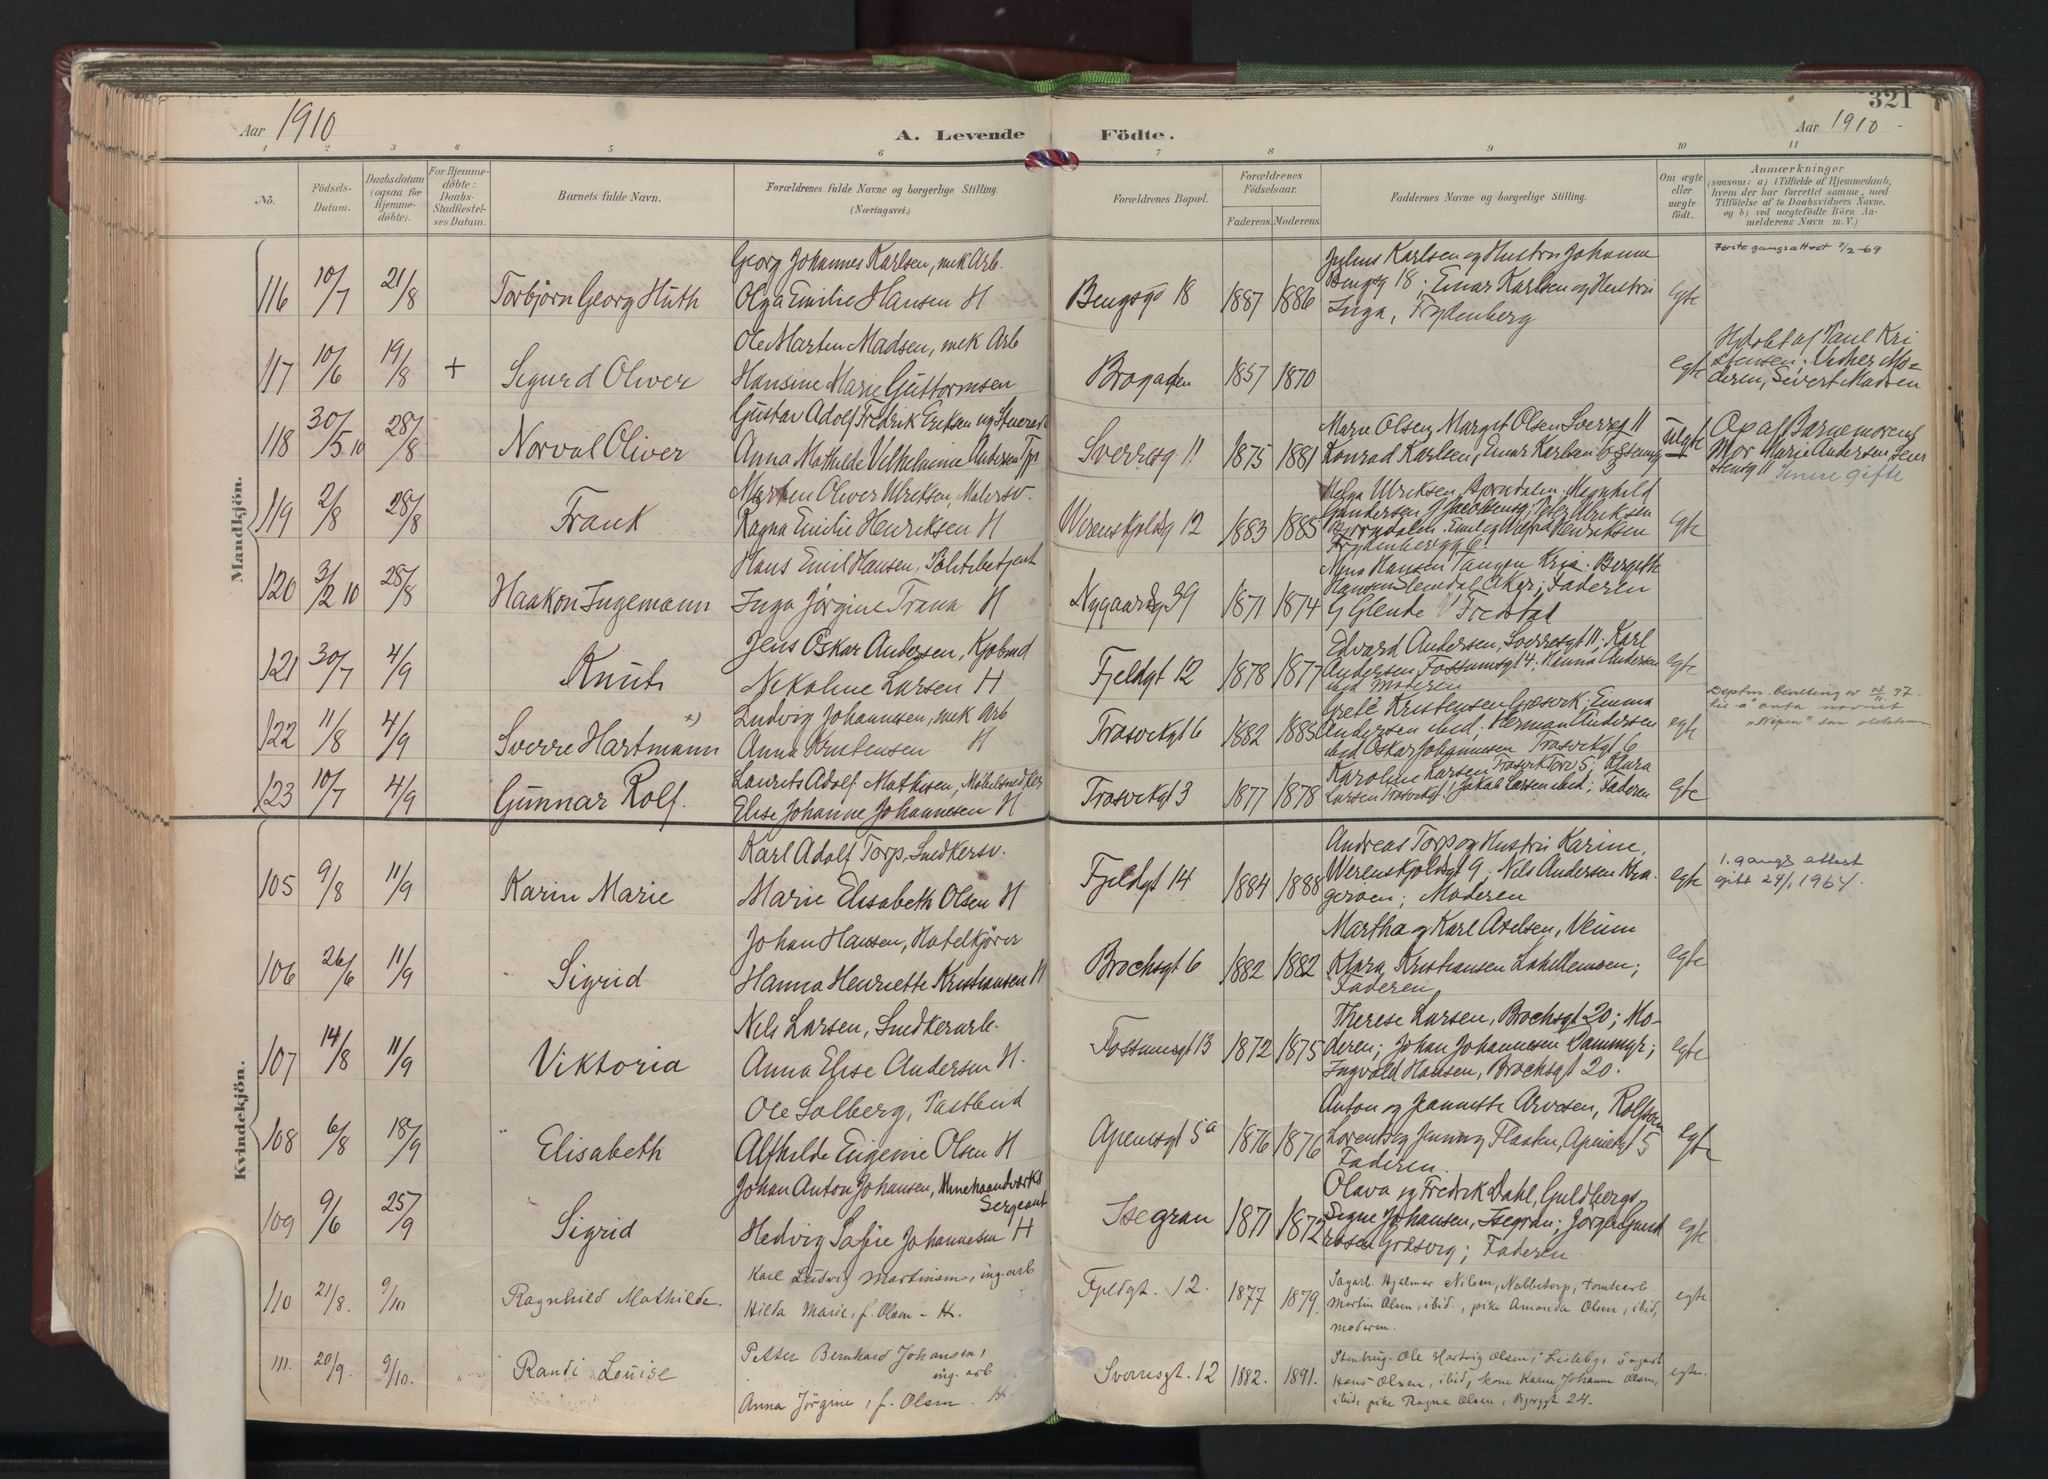 321
Aar 1910
A. Levende
Födte.
Aar 1910
1
2
3
4
5
6
7
8
9
10
11
No.
Födsels-
Datum.
Daabsdatum
(ogsaa for
Hjemme-
döbte).
For Hjemme-
döbte:
Daabs-
Stadfæstel-
ses Datum.
Barnets fulde Navn.
Forældrenes fulde Navne og borgerlige Stilling.
(Næringsvei.)
Forældrenes Bopæl.
Forældrenes
Födselsaar.
Faderens.
Moderens.
Faddernes Navne og borgerlige Stilling.
Om ægte
eller
uægte
födt.
Anmærkninger
(saasom: a) i Tilfælde af Hjemmedaab,
hvem der har forrettet samme, med
Tilföielse af to Daabsvidners Navne.
og b) ved uægtefödte Börn An-
melderens Navn m. V.)
Mandkjön.
116 10/7 21/8 Torbjørn Georg Huth
Georg Johannes Karlsen, mek Arb.
Olga Emilie Hansen H
Bengsgt 18 1887 1886
Julius Karlsen og Hustru Johanne
Bengsg 18; Einar Karlsen og Hustru
Inga, Frydenberg
egte
Første gangs attest 7/2-69
117 10/6 19/8 + Sigurd Oliver
Ole Martin Madsen, mek Arb
Hansine Marie Guttormsen
Brogaden 1857 1870
egte
Hdøbt af Paul Kri
stensen; Vidner Mo-
deren, Sivert Madsen
118 30/5 10 28/8 Norval Oliver
Gustav Adolf Fredrik Eriksen
Anna Mathilde Vilhelmine Andersen
Sverresg 11 1875 1881
Marie Olsen, Margit Olsen Sverresg 11
Konrad Karlsen, Einar Karlsen
uegte
Op af Barnemorens
Mor Marie Andersen
Senere gifte
119 2/8 28/8 Frank
Marten Oliver Ulriksen, Malersv.
Ragna Emilie Henriksen H
Werenskjoldsg 12 1883 1885
Helga Ulriksen, Bjørndalen; Magnhild
Gundersen
Emil og Henriksen
Frydenberg 6.
egte
120 3/2 10 28/8 Haakon Ingemann
Hans Emil Hansen, Politibetjent
Inga Jørgine Trana H
Nygaardsg 39 1871 1874
Hansen Tangen Kria. Bergith
Hansen Aker; Faderen
Fredstad
121 30/7 4/9 Knut
Jens Oskar Andersen, Kjøbmd
Nikoline Larsen H
Fjeldgt 12 1878 1877
Edvard Andersen, Sverresgt 11; Karl
Andersen, Fossumsgt 4; Hanna Andersen
ibid Moderen
egte
122 11/8 4/9 Sverre Hartmann x)
Ludvig Johannesen, mek Arb
Anna Kristensen H
Trosvikgt 6 1882 1885
Grete Kristensen Græsvik; Emma
Andersen ibid; Herman Andersen
ibid Oskar Johannesen Trosvikgt 6
egte
Deptm. bevilling av 37.
til å anta navnet
"Nipen" som slektsnavn
123 10/7 4/9 Gunnar Rolf.
Laurits Adolf Mathisen, Møbelsnedker
Elise Johanne Johannesen H
Trosvikgt 3 1877 1878
Karoline Larsen Trosviktorv 5; Klara
Larsen Trosvikgt 1 Jakob Larsen ibid; Faderen
egte
Kvindekjön.
105 9/8 11/9 Karin Marie
Karl Adolf Torp, Snedkersv.
Marie Elisabeth Olsen H
Fjeldgt 14 1884 1888
Andreas Torp og Hustru Karine,
Werenskjoldsgt 9; Nils Andersen Kra-
gerøen; Moderen
egte
1. gangs attest
gitt 29/1 1964.
106 26/6 11/9 Sigrid
Johan Hansen, Hotelkjører
Hanna Henriette Kristiansen H
Brochsgt 6 1882 1882
Martha og Karl Axelsen, Veum
Klara Kristiansen Lahellemoen;
Faderen
egte
107 14/8 11/9 Viktoria
Nils Larsen, Snedkerarb.
Anna Elise Andersen H.
Fossumsgt 13 1872 1875
Therese Larsen, Brochsgt 20; Mo-
deren; Johan Johannesen Dammyr;
Ingvald Hansen, Brochsgt 20.
egte
108 6/8 18/9 Elisabeth
Ole Solberg, Postbud
Alfhilde Eugenie Olsen H
Apenesgt 5a 1876 1876
Anton og Jeannette Arvesen, Rolfsøen
Lorents og Jenny Flaaten, Apenesgt 5
Faderen.
egte
109 9/6 25/9 Sigrid
Johan Anton Johansen, Minehaandverks
Sergeant
Hedvig Sofie Johannesen H
Isegran 1871 1872
Olava og Fredrik Dahl, Guldbergs-
Signe Johansen, Isegran; Jørgen Gund
ersen Græsvig; Faderen.
egte
110 21/8. 9/10 Ragnhild Mathilde.
Karl Ludvig Martinsen, ing. arb
Hilda Marie, f. Olsen - H.
Fjeldgt. 12. 1877 1879.
Sagarb. Hjalmar Nilsen, Nabbetorp, tomtearb.
Martin Olsen, ibid., pike Amanda Olsen, ibid,
moderen.
egte
111. 20/9. 9/10. Randi Louise
Petter Bernhard Johansen,
ing. arb
Anna Jörgine, f. Olsen. H
Sverresgt. 12 1882. 1891.
Stenhug. Ole Hartvig Olsen, Lisleby, Sagarb
Hans Olsen, ibid, kone Karen Johanne Olsen,
ibid, pike Ragna Olsen, Bjerggt 24.
egte.